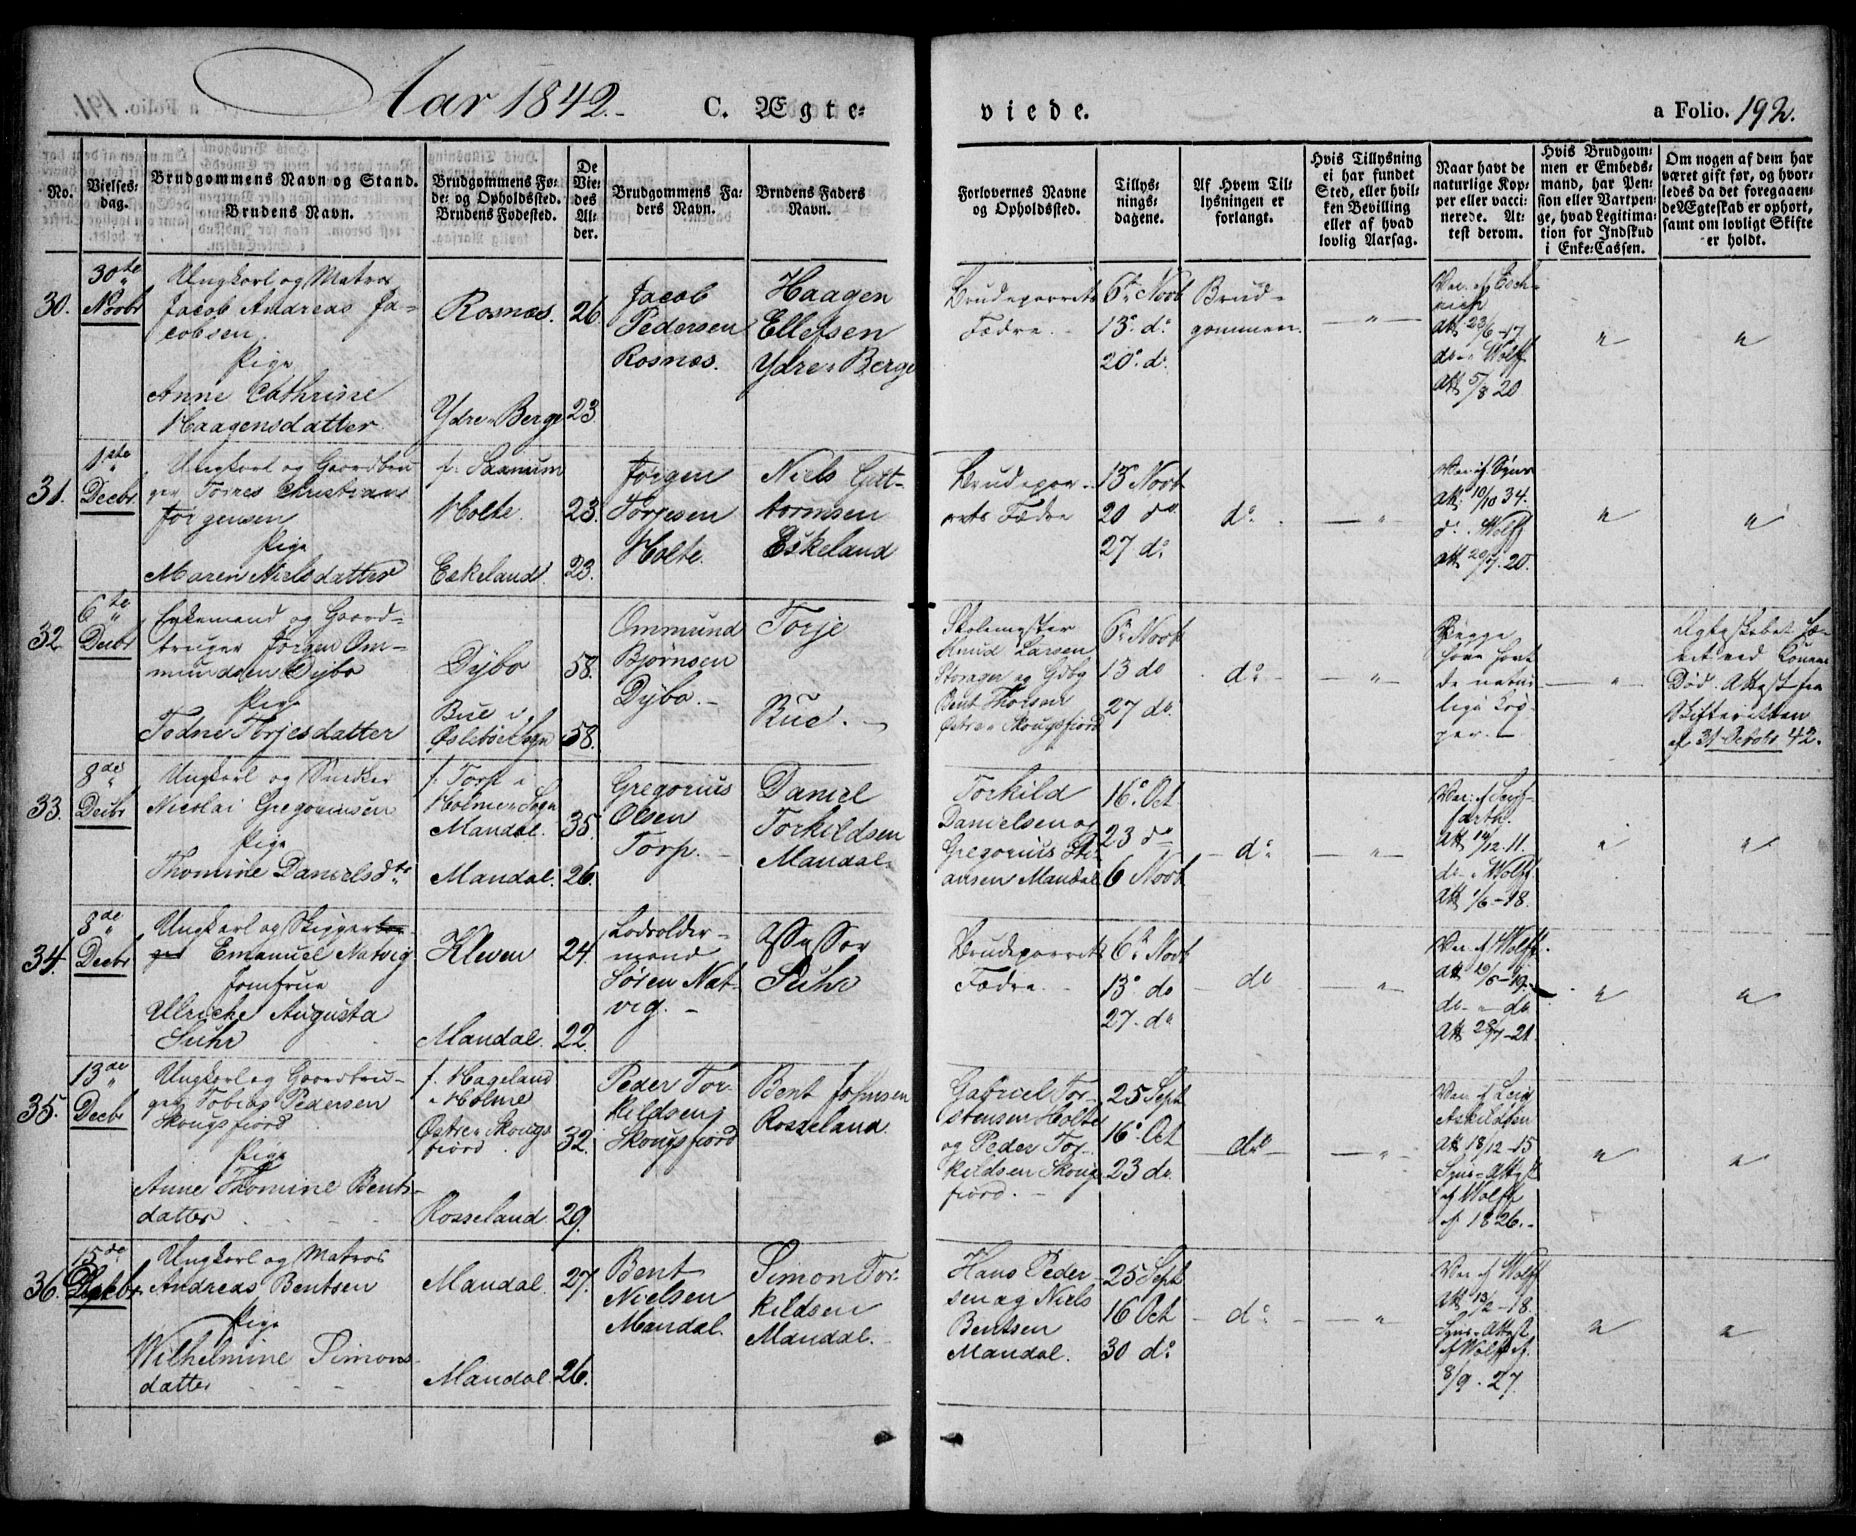 Aar 1842.
C. Ægte-
viede.
a Folio. 192.
No.
Vielses-
dag.
Brudgommens Navn og Stand.
Brudens Navn.
Brudgommens Fø-
de- og Opholdssted.
Brudens Fødested.
De
Vie-
des
Al-
der.
Brudgommens Fa-
ders Navn.
Brudens Faders
Navn.
Forlovernes Navne
og Opholdssted.
Tillys-
nings-
dagene.
Af Hvem Til-
lysningen er
forlangt.
Hvis Tillysning
ei har fundet
Sted, eller hvil-
ken Bevilling
eller af hvad
lovlig Aarsag.
Naar havt de
naturlige Kop-
per eller vacci-
nerede. At-
test derom.
Hvis Brudgom-
men er Embeds-
mand, har Pen-
sion eller Vartpen-
ge, hvad Legitima-
tion for Indskud
i Enke-Cassen.
Om nogen af dem har
været gift før, og hvor-
ledes da det foregaaen-
de Ægteskab er ophørt,
samt om lovligt Skifte
er holdt.
30.
30te
Novbr
Ungkarl og Matros
Jacob Andreas Ja-
cobsen.
Pige
Anne Cathrine
Haagensdatter.
Rosnæs.
Ydre Berge
26.
23.
Jacob
Pedersen
Rosnæs.
Haagen
Ellefsen
Ydre Berge
Brudeparrets
Fædre.
6te Novb
13de do
20de do
Brud-
gommen.
Vac. af
Att 23/6-17
do Wolff
Att 5/8 20
31.
1ste
Decbr
Ungkarl og Gaardbru-
ger Torres Christian
Jørgensen
Pige
Maren Nielsdatter
f: Saanum
Holte.
Eskeland.
23.
23.
Jørgen
Torjesen
Holte.
Niels Gut-
tormsen
Eskeland
Brudepar-
rets Fædre
13 Novb
20 do
27 do
do
Att. 10/10 34.
do Wolff
20.
32
6te
Decbr
Enkemand og Gaard-
bruger Jørgen Om-
mundsen Dybo
Pige
Todne Torjesdatter
Dybo
Bue i
Øslebøe Sogn
58.
58.
Ommund
Bjørnsen
Dybo.
Torje
Bue.
Skolemester
Knud Larsen
Storager og Gdbg
Bent Thorsen
Østre Skougsfiord
6 Novb
13 do
27 do
do
Begge
have havt
de natur-
lige Kop-
per.
Ægteskabet hæ-
vet ved Konens
Død. Attest fra
Skifteretten
af 31 Octobr 42.
33.
8de
Decbr
Ungkarl og Snedker
Nicolai Gregoriussen
Pige
Thomine Danielsdtr
f: Torp i
Holme Sogn
Mandal.
Mandal.
35.
26.
Gregorius
Olsen
Torp.
Daniel
Torkildsen
Mandal.
Torkild
Danielsen og
Gregorius
Mandal
16 Oct
23 do
6 Novb
do
Att 14/12. 11.
do Wolff
Att 1/6-18.
34.
8de
Decbr
Ungkarl og Skipper
Emanuel Natvig
Jomfrue
Ulricke Augusta
Suhr
Kleven
Mandal.
24.
22.
Lodsolder-
mand
Søren Nat-
vig.
Assessor
Suhr
Brudeparrets
Fædre.
6 Novb
13 do
27 do
do
Vac. af Wolff.
do do
Att 28/7-21
35.
13de
Decbr
Ungkarl og Gaardbru-
ger Tobias Pedersen
Skougsfiord
Pige
Anne Thomine Bents-
datter
f. Hageland
i Holme
Østre Skougs-
fiord.
Rosseland
32.
29.
Peder Tor-
kildsen
Skougsfiord
Bent Johnsen
Rosseland.
Gabriel Tor-
stensen Holte
og Peder Tor-
kildsen Skougs-
fiord.
25 Sept
16 Oct
23 do
do
Vac. af
Askildsen
Att 18/12-15
Syns-Attest
af Wolff
af 1826.
36.
15de
Decbr
Ungkarl og Matros
Andreas Bentsen
Pige
Wilhelmine Simons-
datter
Mandal.
Mandal.
27.
26.
Bent
Nielsen
Mandal.
Simon Tor-
kildsen
Mandal.
Hans Peder-
sen og Niels
Bentsen
Mandal.
25 Sept
16 Oct
30 do
do
Vac. af Wolff
Att 13/2-18.
Syns-Attest
af Wolff af
8/9. 27.